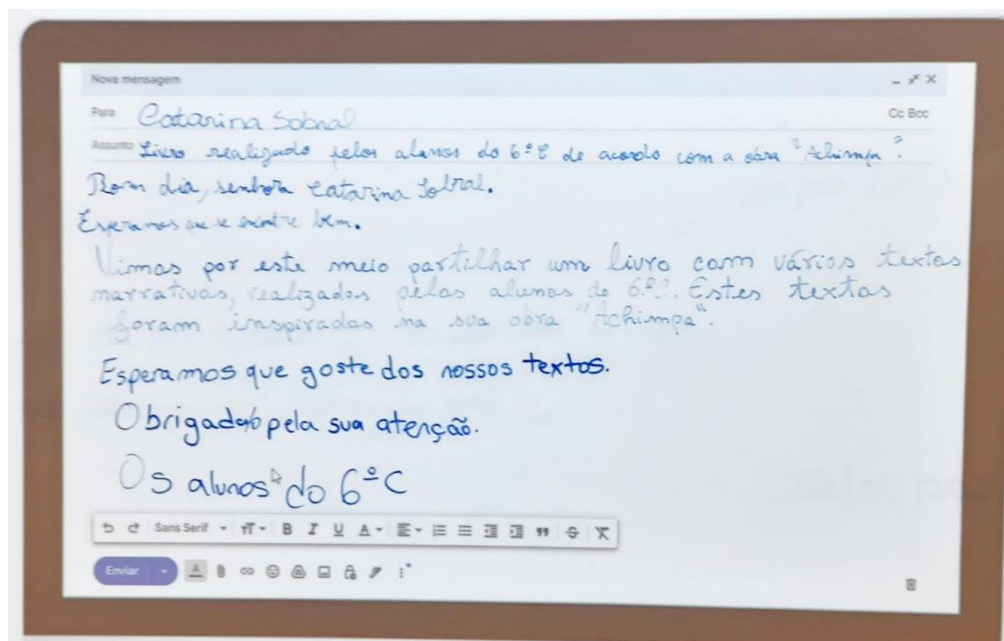 Nova mensagem
Para Catarina Sobral
Cc Bcc
Assunto Livro realizado pelos alunos do 6.º C de acordo com a obra "Achimpa".
Bom dia, senhora Catarina Sobral.
Esperamos que se encontre bem.
Vimos por este meio partilhar um livro com vários textos
narrativos, realizados pelos alunos do 6.ºC. Estes textos
foram inspirados na sua obra "Achimpa".
Esperamos que goste dos nossos textos.
Obrigado pela sua atenção.
Os alunos do 6ºC
Sans Serif
Enviar